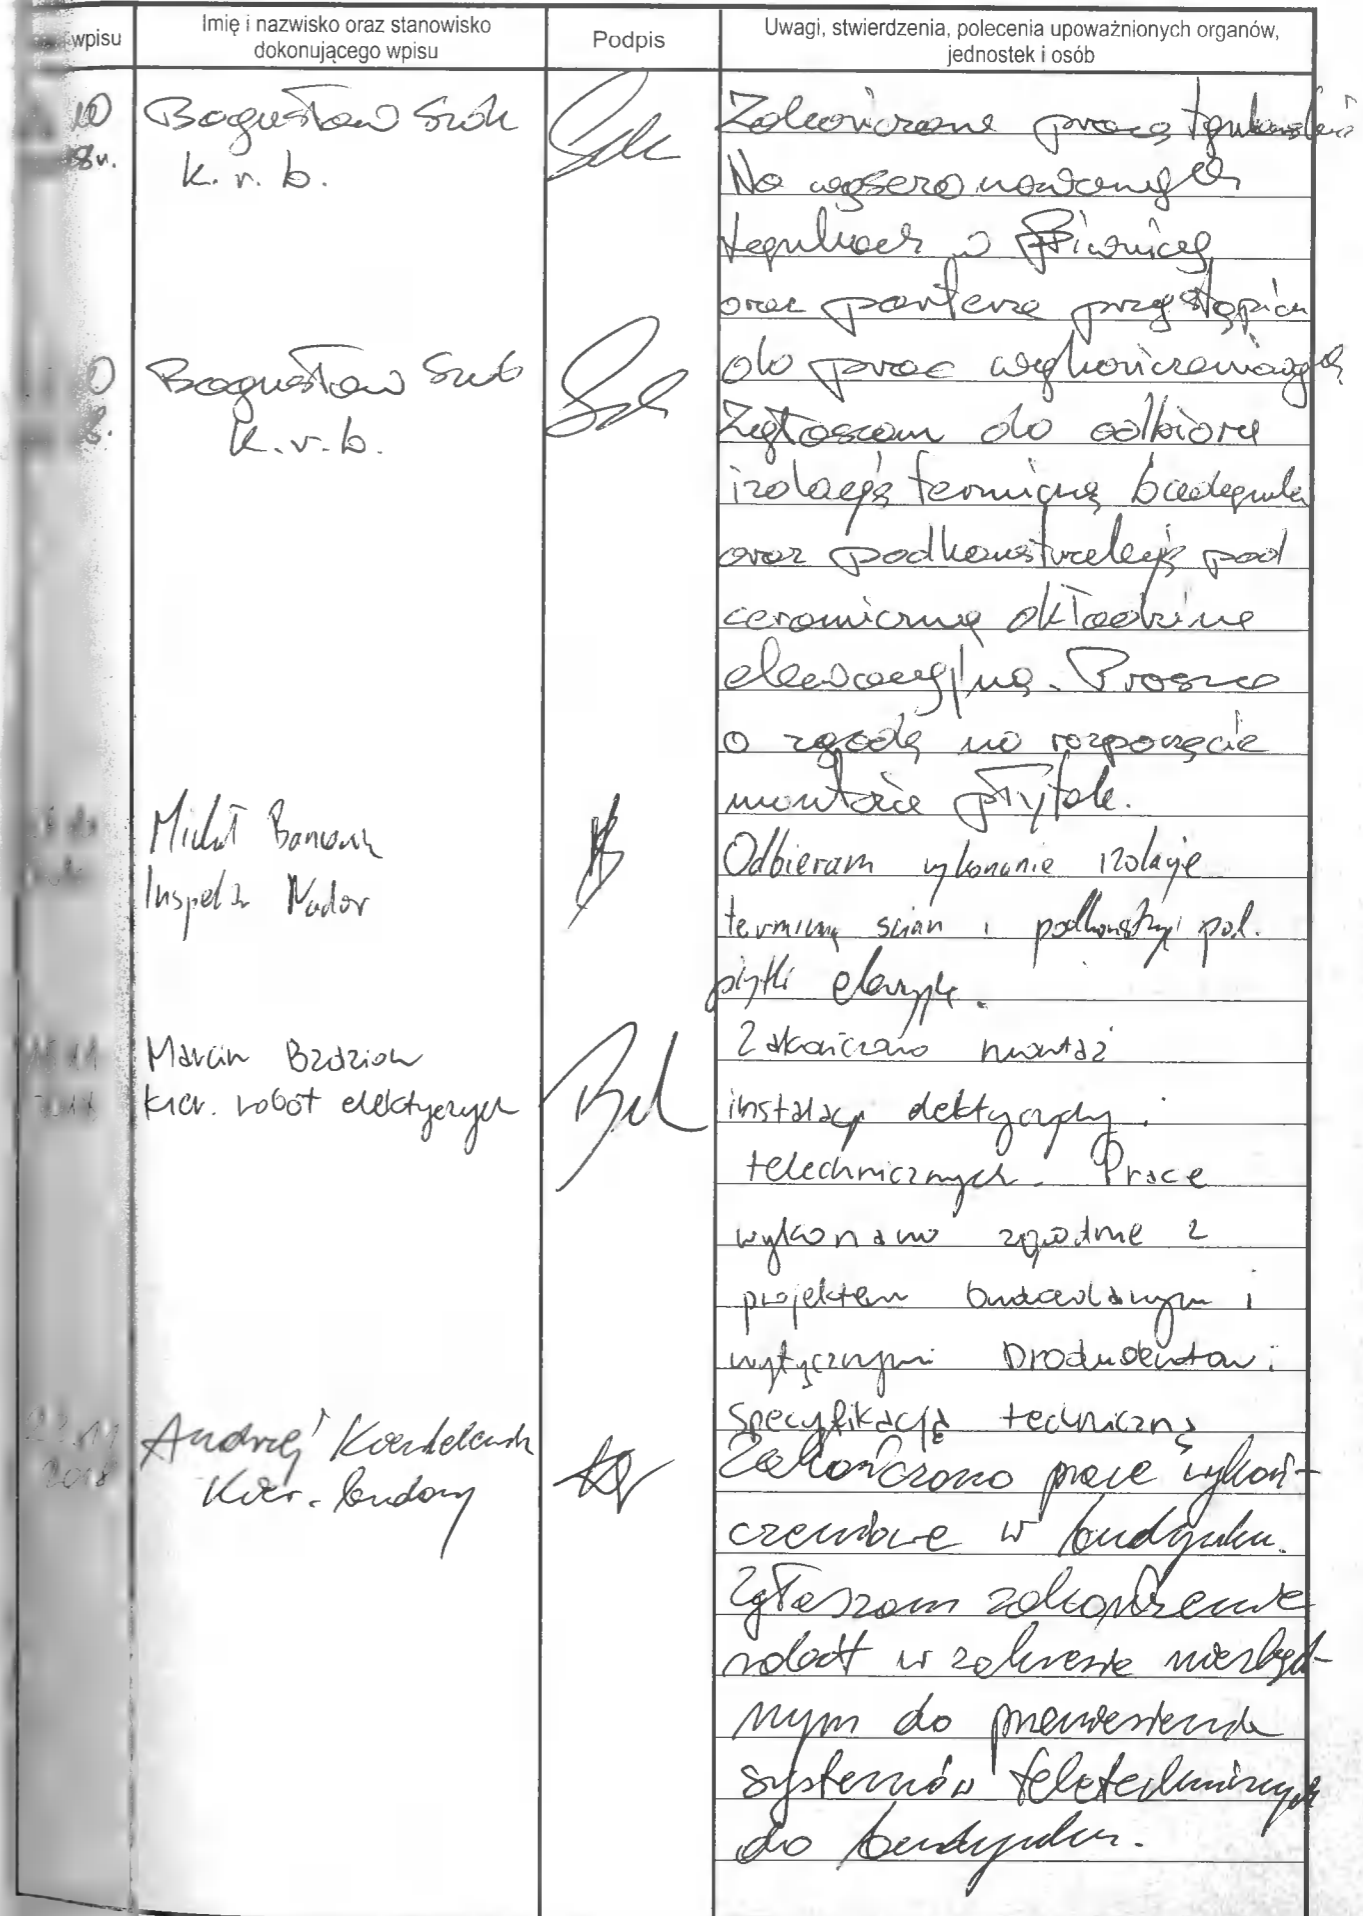 wpisu
Imię i nazwisko oraz stanowisko
dokonującego wpisu
Podpis
Uwagi, stwierdzenia, polecenia upoważnionych organów,
jednostek i osób
10
Bogusław
k. r. b.
Zakończone prace tynkarskie
Na wysezonowanych
tynkach w Piwnicy
oraz parterze przystąpiono
do prac wykończeniowych
Bogusław
k. r. b.
Zgłaszam do odbioru
izolację termiczną budynku
oraz podkonstrukcję pod
ceramiczną okładzinę
elewacyjną. Proszę
o zgodę na rozpoczęcie
montażu płytek.
Michał
Inspektor Nadzor
Odbieram wykonanie izolacje
termiczną ścian i podkonstrukcji pod.
płytki
Marcin
kier. robót elektrycznych
Zakończono montaż
instalacji elektrycznych i
teletechnicznych. Prace
wykonano zgodnie z
projektem budowlanym i
wytycznymi producentów i
specyfikacją techniczną
2018
Andrzej
Kier. budowy
Zakończono prace wykoń-
czeniowe w budynku.
Zgłaszam zakończenie
robót w zakresie niezbęd-
nym do przeniesienia
systemów teletechnicznych
do budynku.